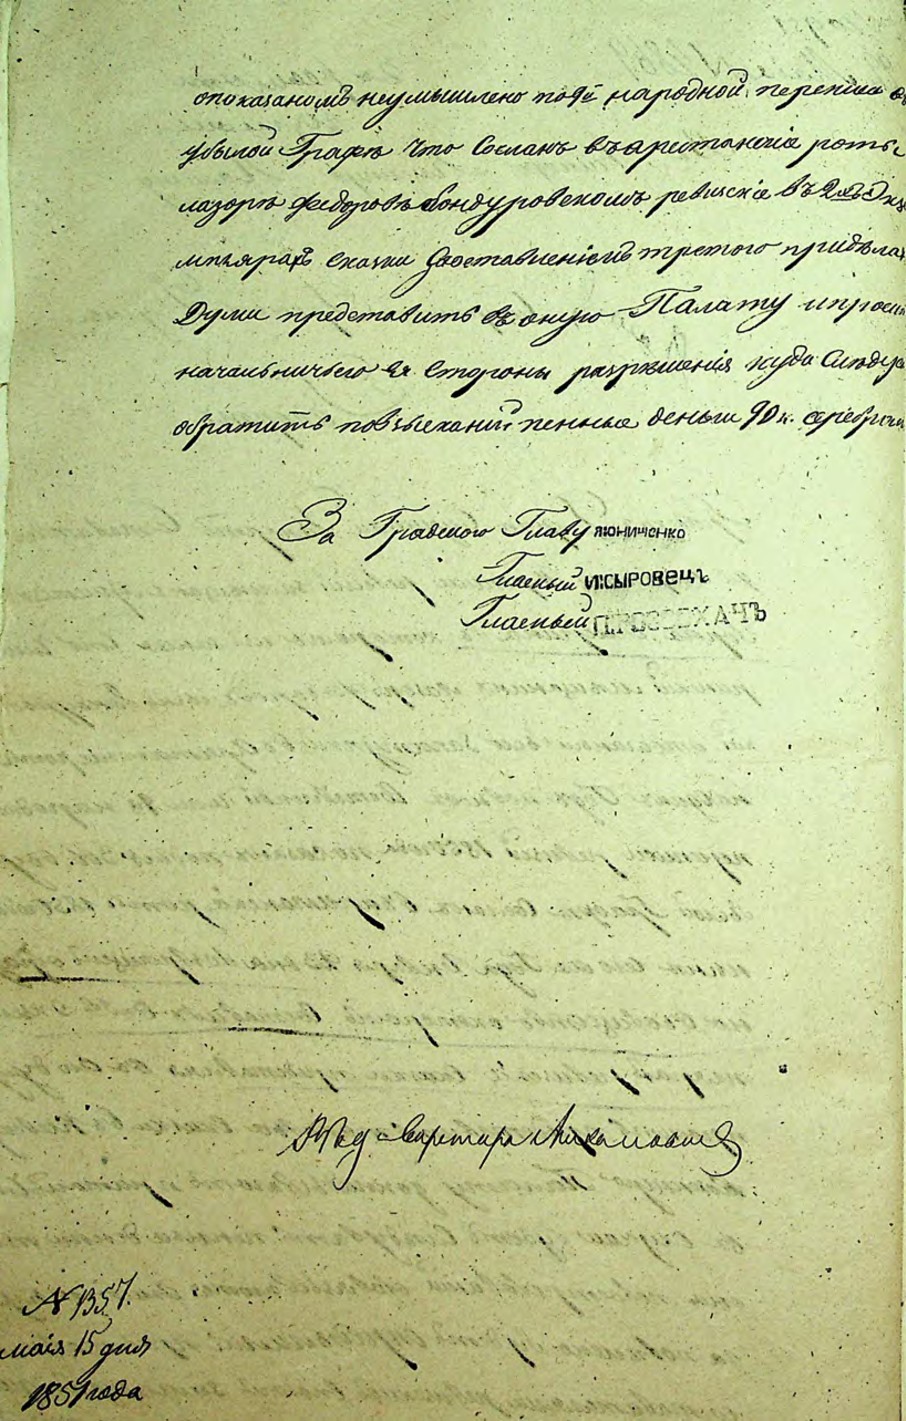 опоказаномъ неумышлено по 9й народной переписи въ
убылой Графѣ что Сосланъ въ арестанскіе роты
лазорѣ Федоровѣ Бондуровскомъ ревизскіе въ 2хъ Экзе
мплярахъ сказки Доставленіемъ третого придѣлахъ
Думи представить въ оную Палату и проси
начальничьего ея Стороны разрѣшенія куда Слѣдуе
обратить повзысканій пенные деньги 90 к. серебром
За Градского Главу Яюниченко
Гласный И:сыровецъ
Гласный
Секретарь
№ 1357.
маія 15 дня
1851 года